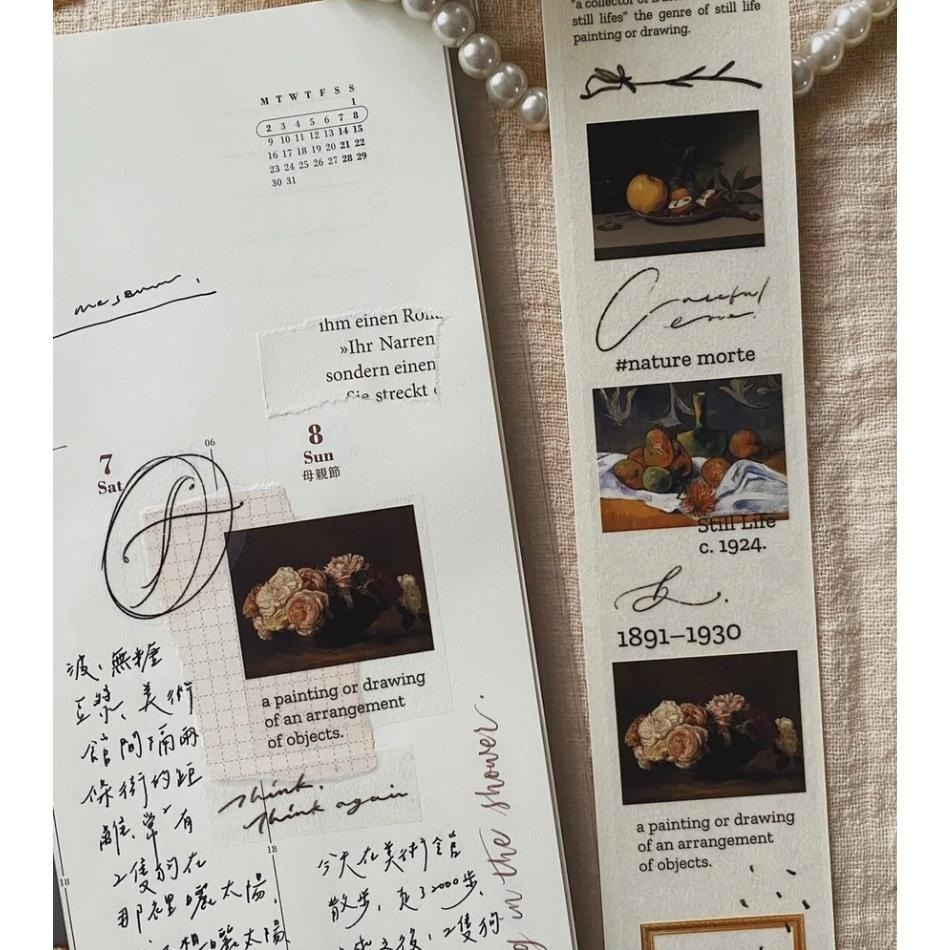 M T W T F S S
1
2 3 4 5 6 7 8
9 10 11 12 13 14 15
16 17 18 19 20 21 22
23 24 25 26 27 28 29
30 31
museum.
ihm einen
»Ihr Narren
sondern einen
Sie streckt
7
Sat
06
8
Sun
母親節
a painting or drawing
of an arrangement
of objects.
think.
think again
無糖
豆漿、美術
館間隔兩
條街的距
離、常有
2隻狗在
那裡曬太陽,
曬太陽
18
18
今天在美術館
散步,走了2000步,
之後,2隻狗
in the shower.
"a collector of
still lifes" the genre of still life
painting or drawing.
Careful
#nature morte
Still Life
c. 1924.
b.
1891–1930
a painting or drawing
of an arrangement
of objects.